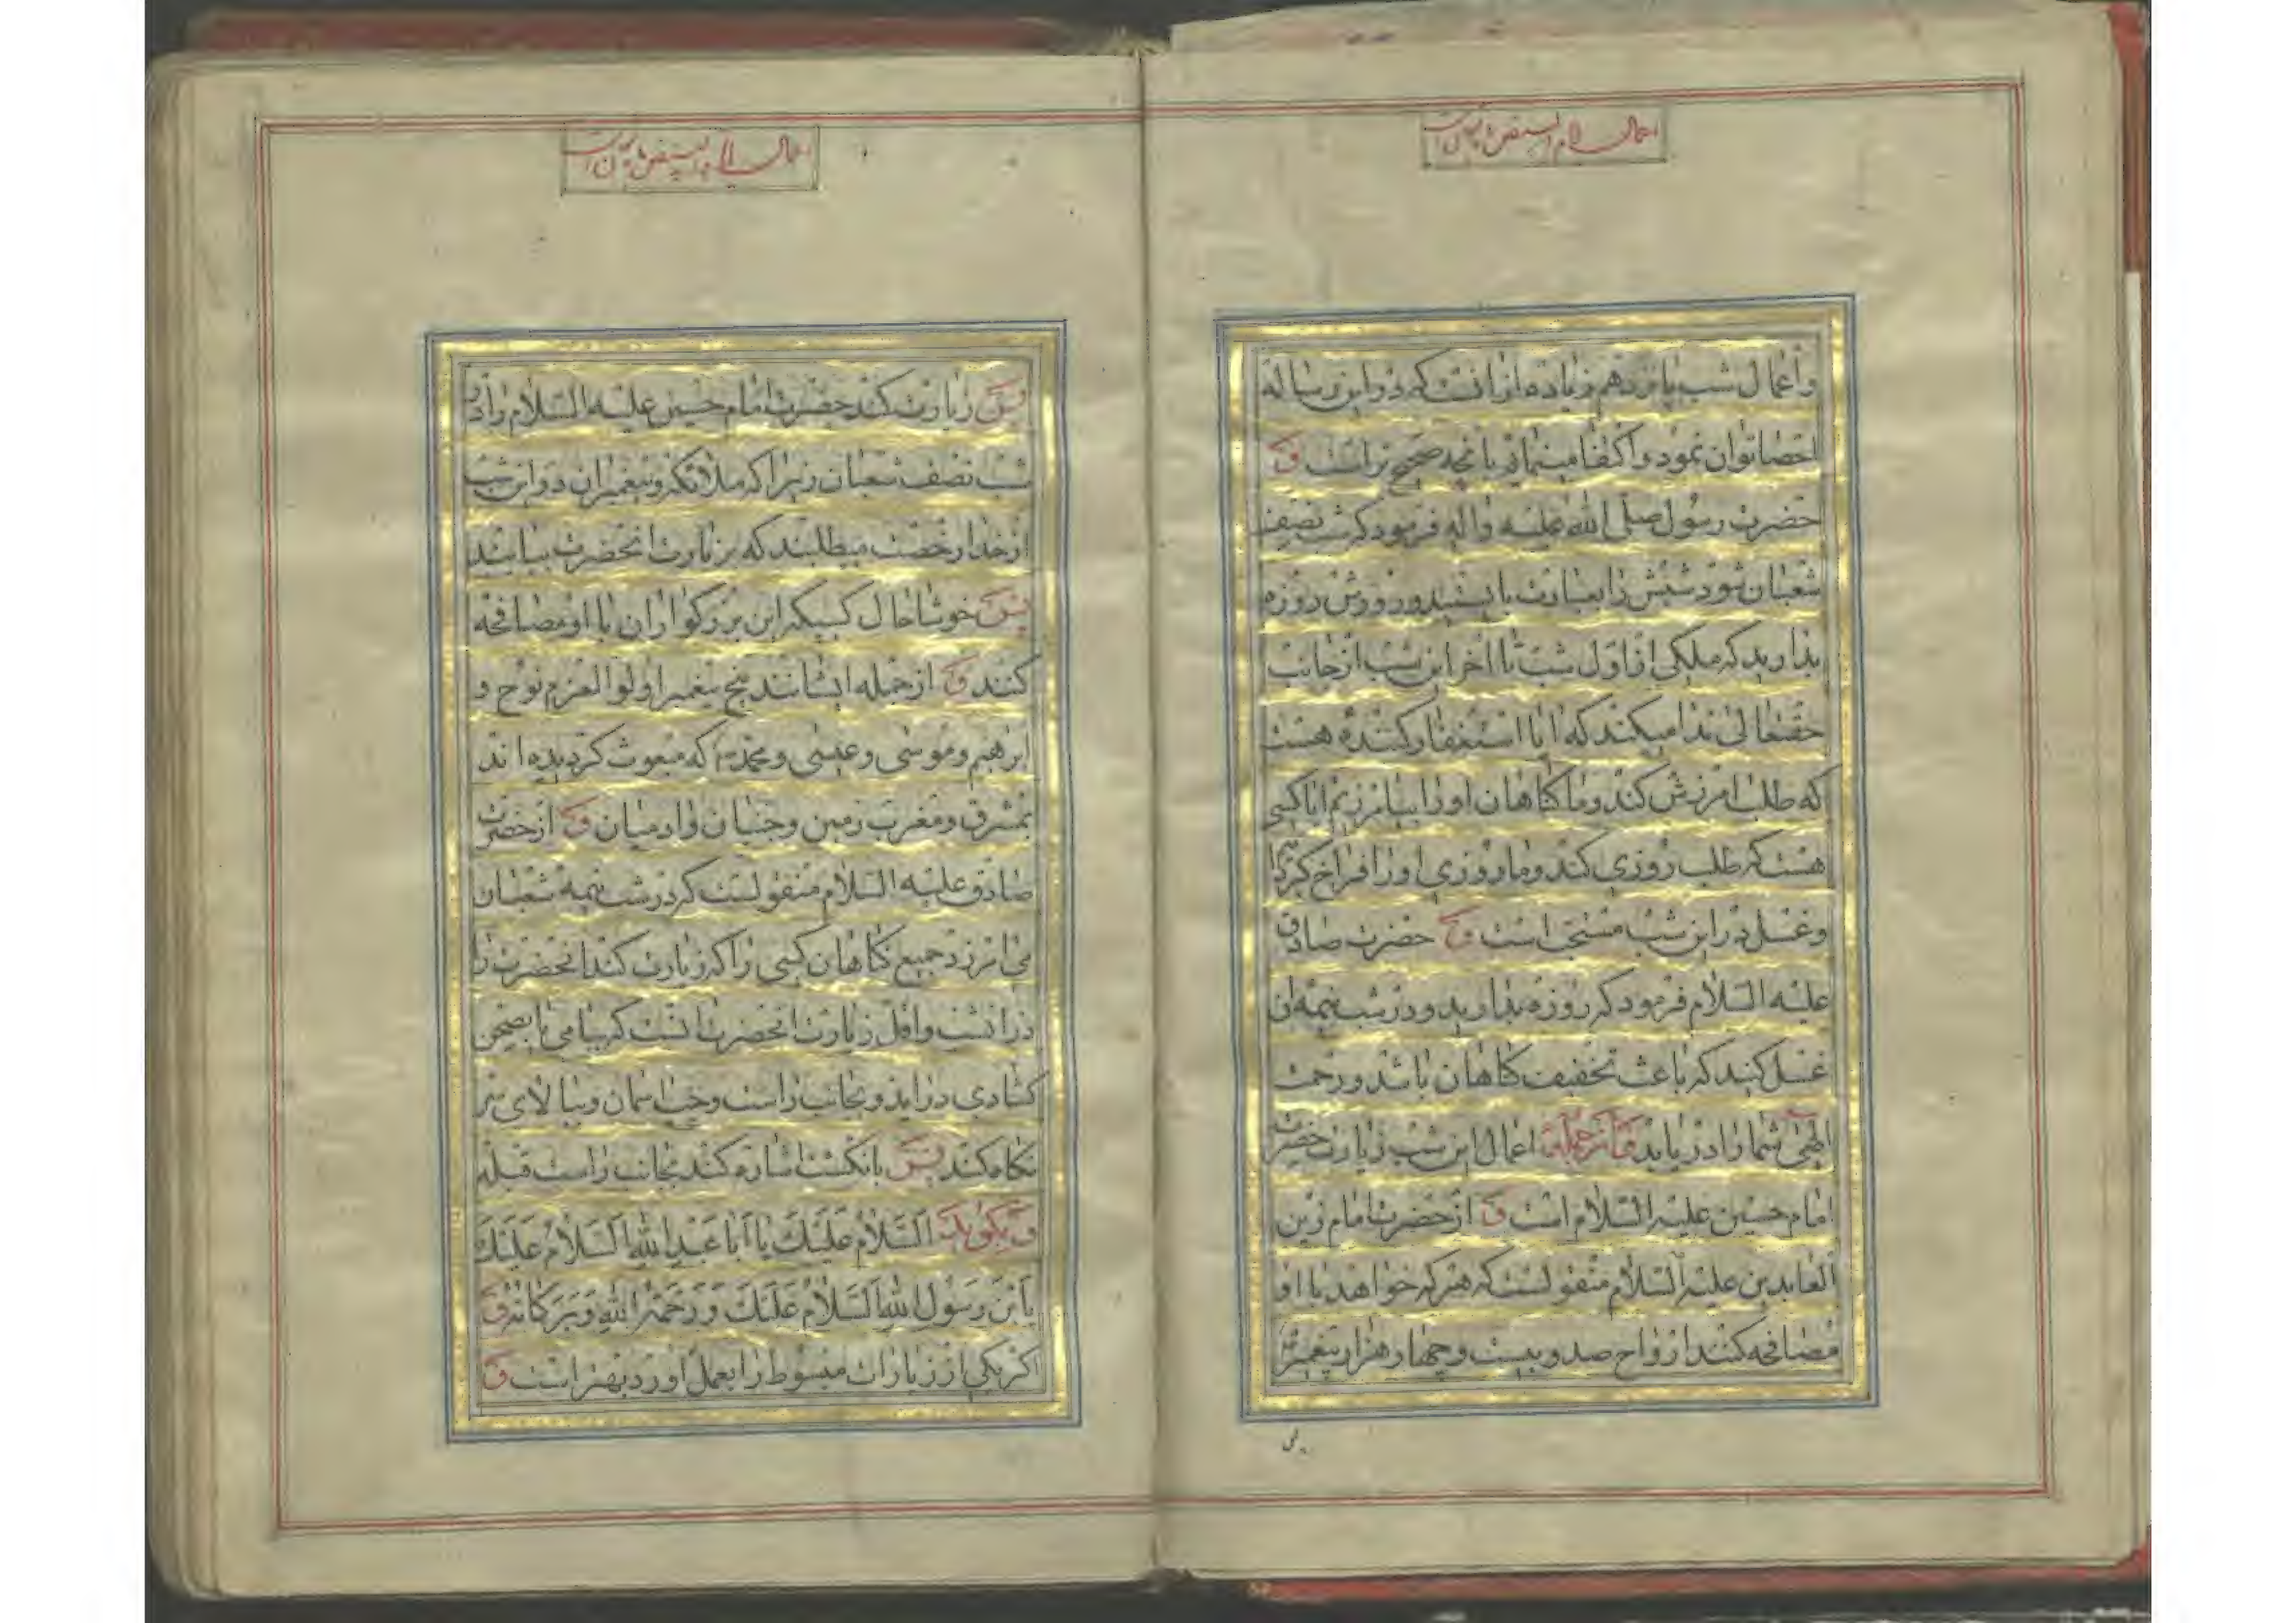 اعمال ایام البیض
و اعمال شب پانزدهم زیاده از انست که در این رساله
احصا توان نمود و اکتفا مینمائیم بانچه صحیح تر است و
حضرت رسول صلی الله علیه واله فرمود که شب نصف
شعبان شود شبش را بعبادت بایستید و روزش روزه
بدارید که ملکی از اول شب تا اخر این شب از جانب
حقتعالی ندا میکند که ایا استغفار کننده هست
که طلب امرزش کند و ما گناهان او را بیامرزیم ایا کسی
هست که طلب روزی کند و ما روزی او را فراخ گردانیم
و غسل در این شب مستحب است و حضرت صادق
علیه السلام فرمود که روزه بدارید و در شب نیمه ان
غسل کنید که باعث تخفیف گناهان باشد و رحمت
الهی شما را دریابد و از جمله اعمال این شب زیارت حضرت
امام حسین علیه السلام است و از حضرت امام زین
العابدین علیه السلام منقولست که هر که خواهد با او
مصافحه کنند ارواح صد و بیست و چهار هزار پیغمبر
پس
اعمال ایام البیض
پس زیارت کند حضرت امام حسین علیه السلام را در
شب نصف شعبان زیرا که ملائکه و پیغمبران در این شب
از خدا رخصت میطلبند که بزیارت انحضرت بیایند
پس خوشا حال کسیکه این بزرگواران با او مصافحه
کنند و از جمله ایشانند پنج پیغمبر اولوا العزم نوح و
ابرهیم و موسی و عیسی و محمد که مبعوث گردیده اند
بمشرق و مغرب زمین و جنیان و ادمیان و از حضرت
صادق علیه السلام منقولست که در شب نیمه شعبان
می امرزد جمیع گناهان کسی را که زیارت کند انحضرت را
در انشب و اقل زیارت انحضرت انست که ببامی یا بصحن
گشادی در اید و بجانب راست و چپ اسمان و ببالای سر
نگاه کند پس بانگشت اشاره کند بجانب راست قبله
و بگوید اَلسَّلامُ عَلَیْكَ یا اَبا عَبْدِ اللهِ اَلسَّلامُ عَلَیْكَ
یَا بْنَ رَسُولِ اللهِ اَلسَّلامُ عَلَیْكَ وَ رَحْمَةُ اللهِ وَ بَرَکاتُهُ و
اگر یکی از زیارات مبسوط را بعمل اورد بهتر است و